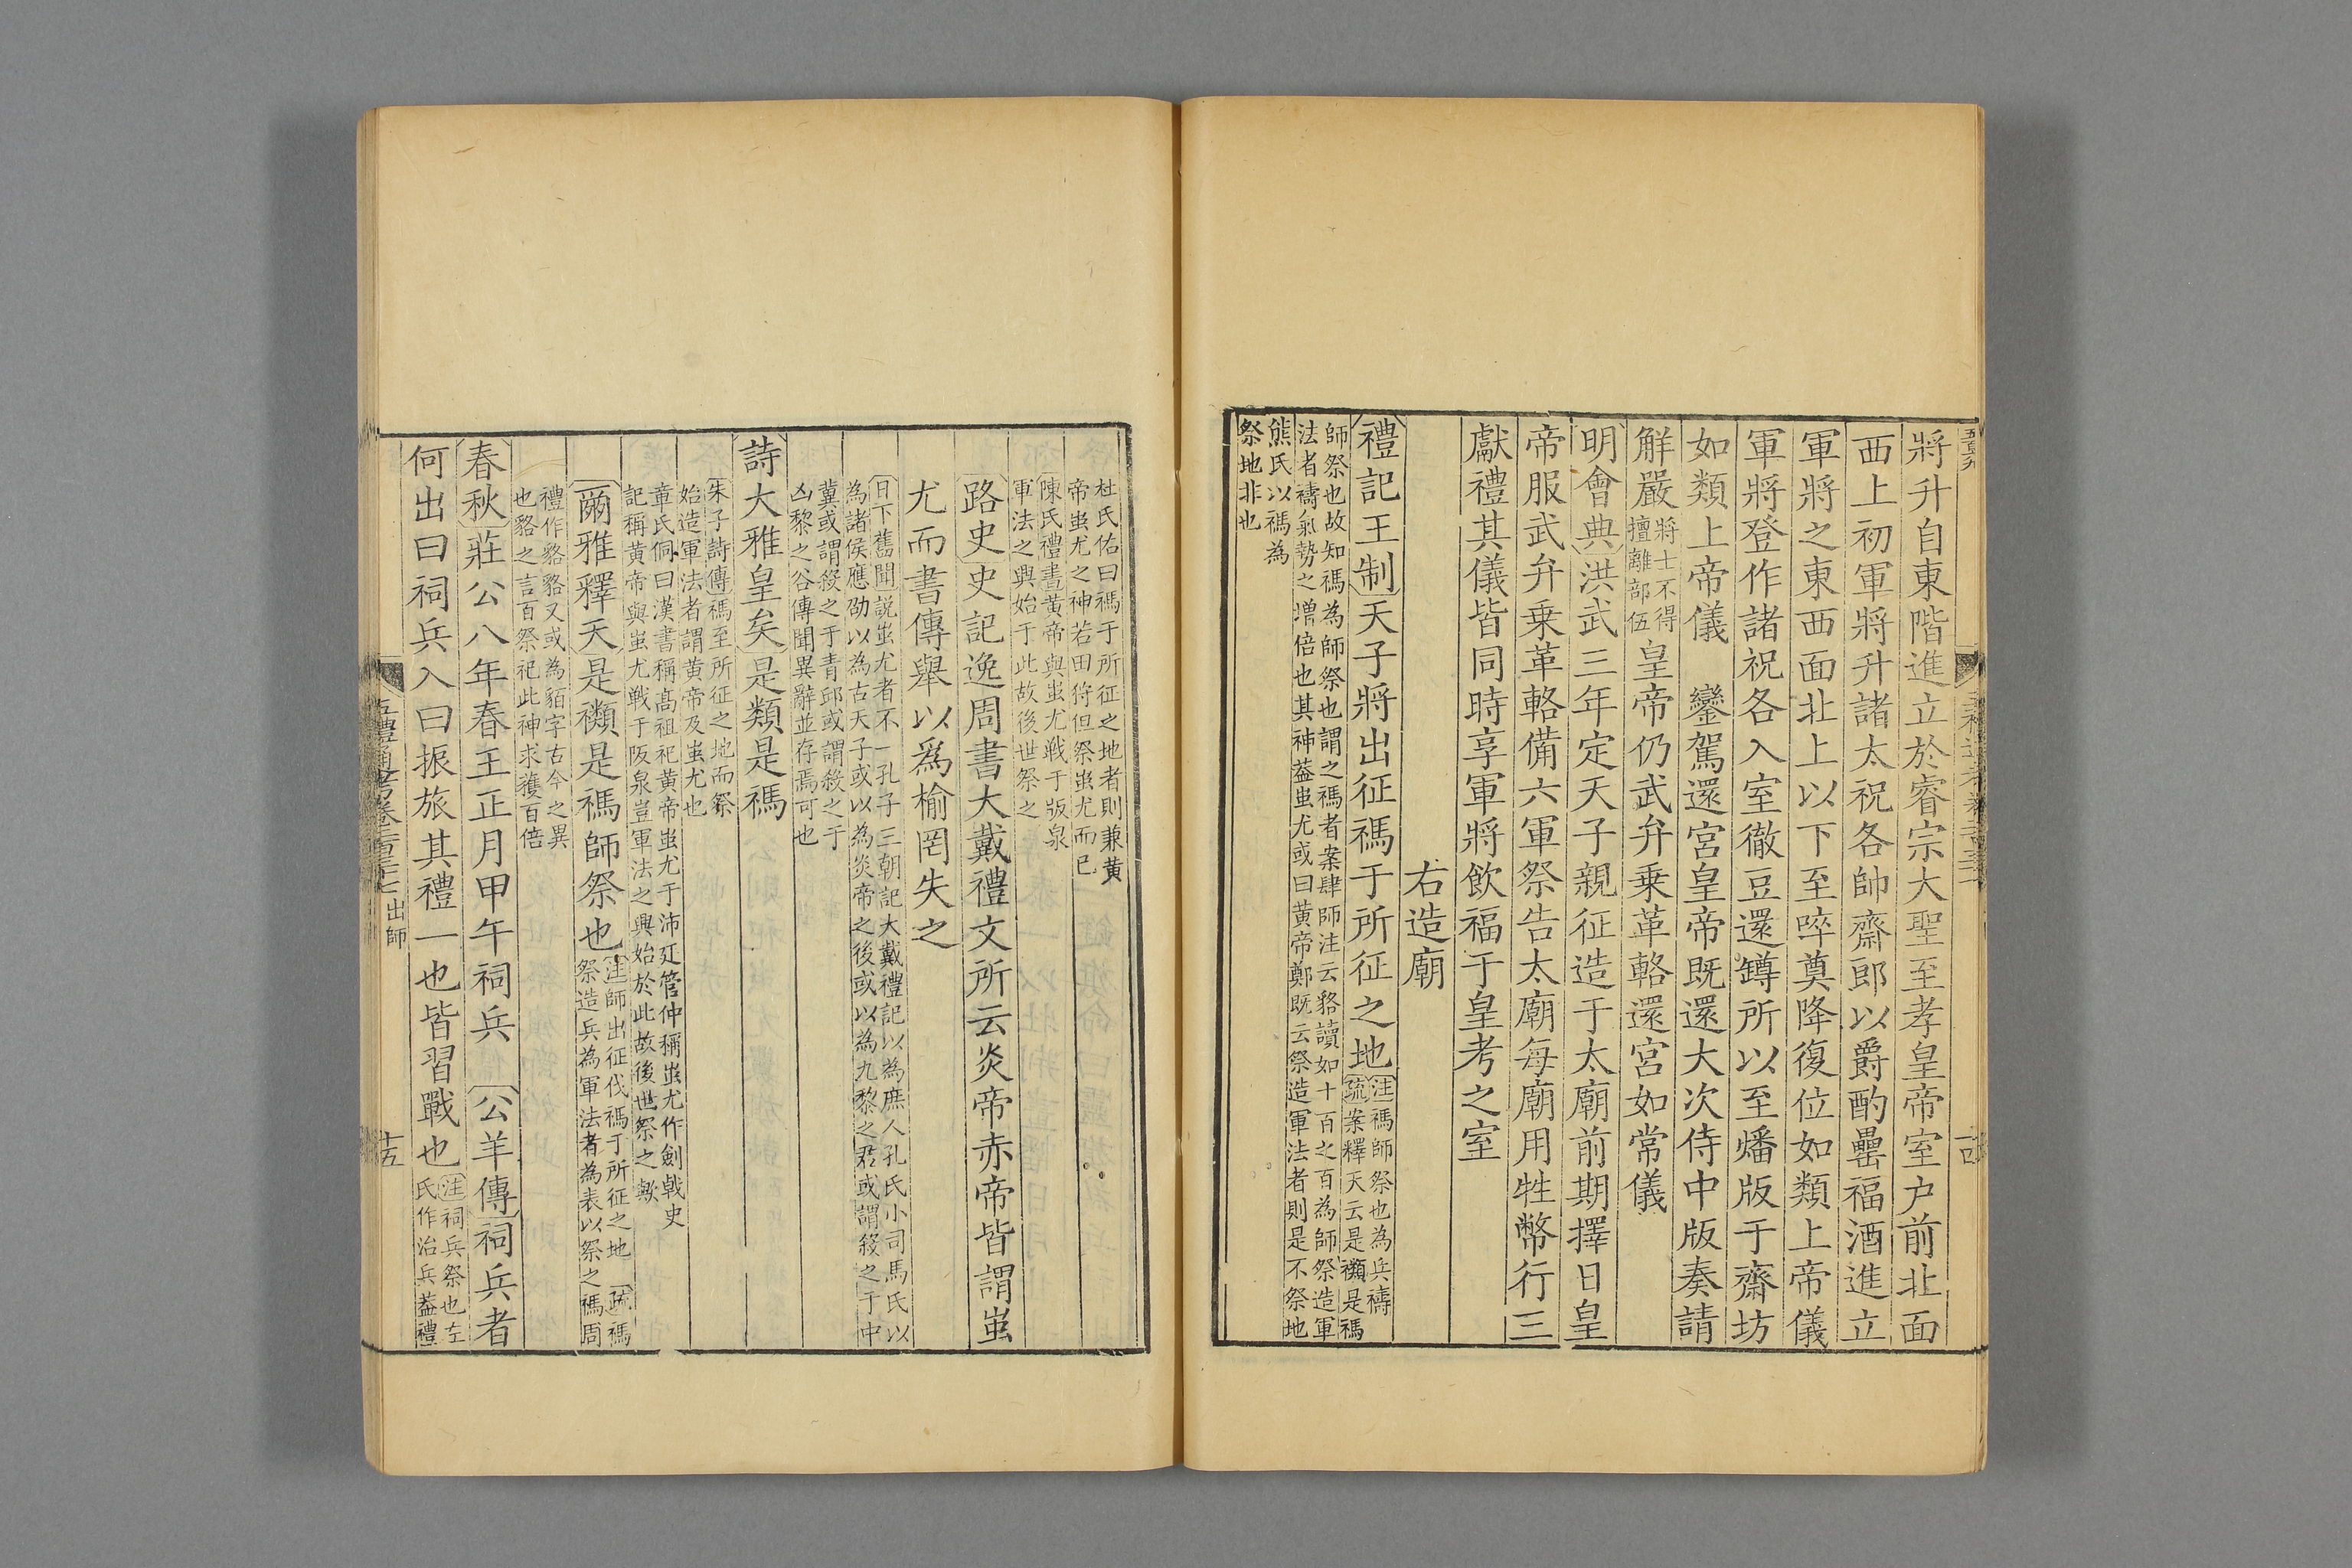 將升自東階進立於睿宗大聖至孝皇帝室户前北面
西上初軍將升諸太祝各帥齋郎以爵酌罍福酒進立
軍將之東西面北上以下至啐奠降復位如類上帝儀
軍將登作諸祝各入室徹豆還罇所以至燔版于齋坊
如類上帝儀 鑾駕還宮皇帝既還大次侍中版奏請
解嚴將士不得擅離部伍皇帝仍武弁乗革輅還宮如常儀
明會典洪武三年定天子親征造于太廟前期擇日皇
帝服武弁乗革輅備六軍祭告太廟每廟用牲幣行三
獻禮其儀皆同時享軍將飲福于皇考之室
右造廟
禮記王制天子將出征禡于所征之地注禡師祭也為兵禱疏案釋天云是禷是禡
師祭也故知禡為師祭也謂之禡者案肆師注云貉讀如十百之百為師祭造軍
法者禱氣勢之増倍也其神葢蚩尤或曰黄帝鄭既云祭造軍法者則是不祭地
熊氏以禡為
祭地非也
杜氏佑曰禡于所征之地者則兼黄
帝蚩尤之神若田狩但祭蚩尤而已
陳氏禮書黄帝與蚩尤戦于版泉
軍法之興始于此故後世祭之
路史史記逸周書大戴禮文所云炎帝赤帝皆謂蚩
尤而書傳舉以爲榆罔失之
日下舊聞説蚩尤者不一孔子三朝記大戴禮記以為庶人孔氏小司馬氏以
為諸侯應劭以為古天子或以為炎帝之後或以為九黎之君或謂殺之于中
冀或謂殺之于青邱或謂殺之于
凶黎之谷傳聞異辭並存焉可也
詩大雅皇矣是類是禡
朱子詩傳禡至所征之地而祭
始造軍法者謂黄帝及蚩尤也
童氏侗曰漢書稱髙祖祀黄帝蚩尤于沛廷管仲稱蚩尤作劍戟史
記稱黄帝與蚩尤戦于阪泉豈軍法之興始於此故後世祭之歟
爾雅釋天是禷是禡師祭也注師出征伐禡于所征之地 疏禡祭造兵為軍法者為表以祭之禡周
禮作貉貉又或為貊字古今之異
也貉之言百祭祀此神求獲百倍
春秋莊公八年春王正月甲午祠兵 公羊傳祠兵者
何出曰祠兵入曰振旅其禮一也皆習戰也注祠兵祭也左氏作治兵葢禮
五禮通考卷二百三十七 出師
十五